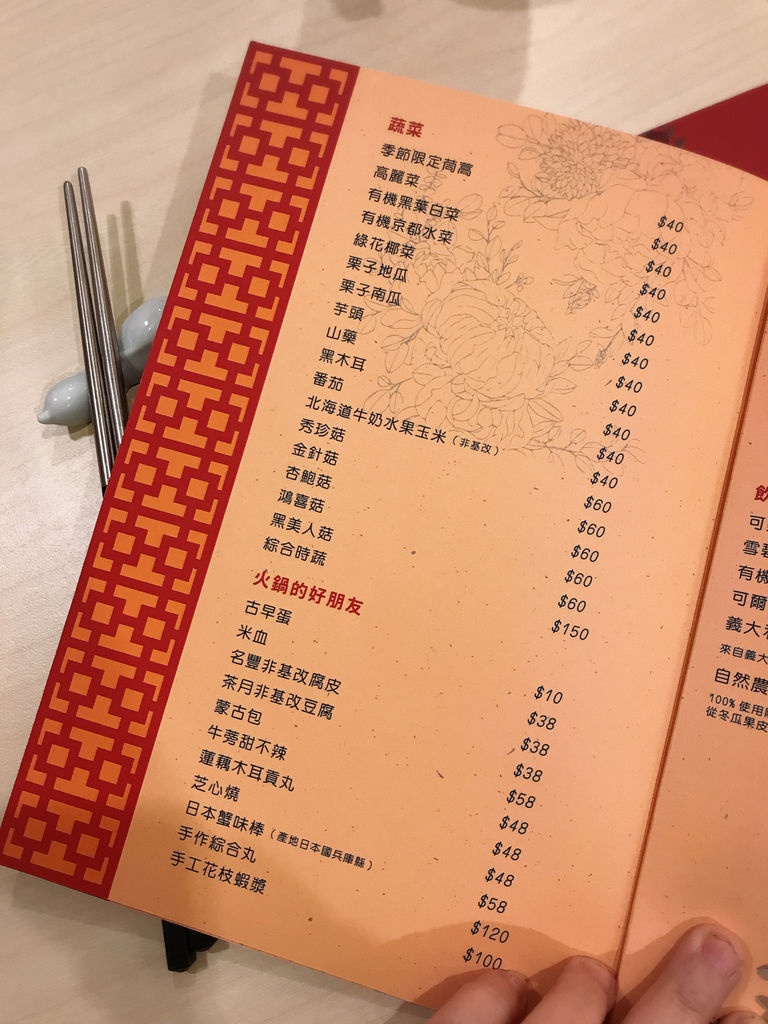 蔬菜
季節限定茼蒿 $40
高麗菜 $40
有機黑葉白菜 $40
有機京都水菜 $40
綠花椰菜 $40
栗子地瓜 $40
栗子南瓜 $40
芋頭 $40
山藥 $40
黑木耳 $40
番茄 $40
北海道牛奶水果玉米（非基改） $40
秀珍菇 $60
金針菇 $60
杏鮑菇 $60
鴻喜菇 $60
黑美人菇 $60
綜合時蔬 $150
火鍋的好朋友
古早蛋 $10
米血 $38
名豐非基改腐皮 $38
茶月非基改豆腐 $38
蒙古包 $58
牛蒡甜不辣 $48
蓮藕木耳貢丸 $48
芝心燒 $48
日本蟹味棒（產地日本國兵庫縣） $58
手作綜合丸 $120
手工花枝蝦漿 $100
飲
可
雪碧
有機
可爾
義大利
來自義大
自然農
100% 使用
從冬瓜果皮